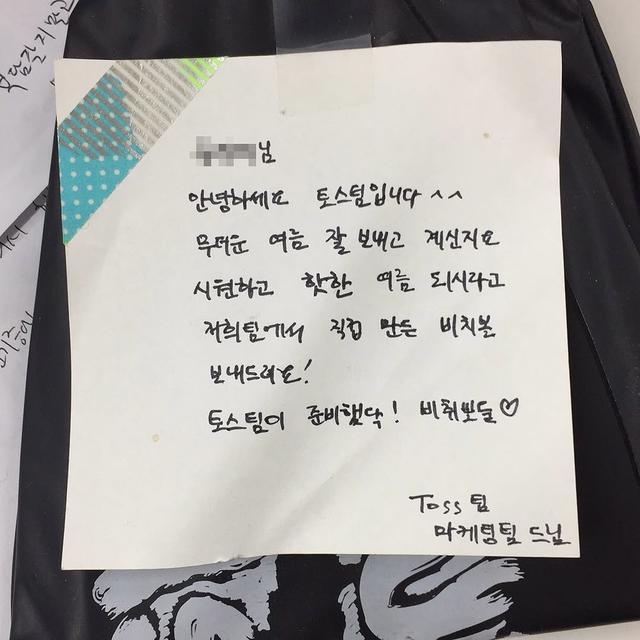 님
안녕하세요 토스팀입니다 ^^
무더운 여름 잘 보내고 계신지요
시원하고 핫한 여름 되시라고
저희팀에서 직접 만든 비치볼
보내드려요!
토스팀이 준비했닥! 비취뽀들♡
Toss 팀
마케팅팀 드림